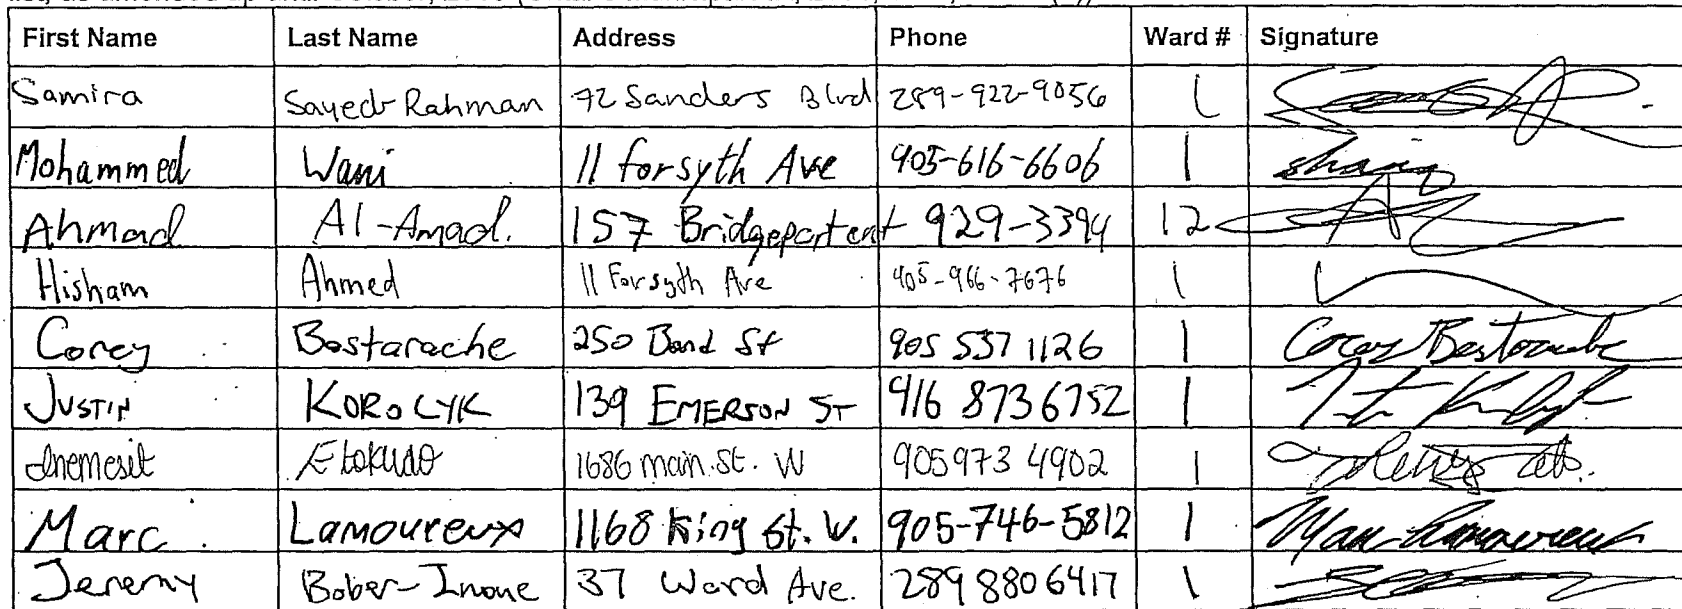 First Name Last Name Address Phone Ward # Signature
Samira Sayed-Rahman 72 Sanders Blvd 289-922-9056 1
Mohammed Wani 11 forsyth Ave 905-616-6606 1
Ahmad Al-Amad. 157 Bridgeport 929-3394 12
Hisham Ahmed 11 Forsyth Ave 905-966-7676 1
Corey Bastarache 250 Bond St 905 537 1126 1 Corey Bastarache
JUSTIN KOROLYK 139 EMERSON ST 416 8736752 1
Inemesit Etokudo 1686 main st. W 905973 4902 1
Marc Lamoureux 1168 King St. W. 905-746-5812 1 Marc Lamoureux
Jeremy Bober-Inoue 37 Ward Ave. 289 880 6417 1